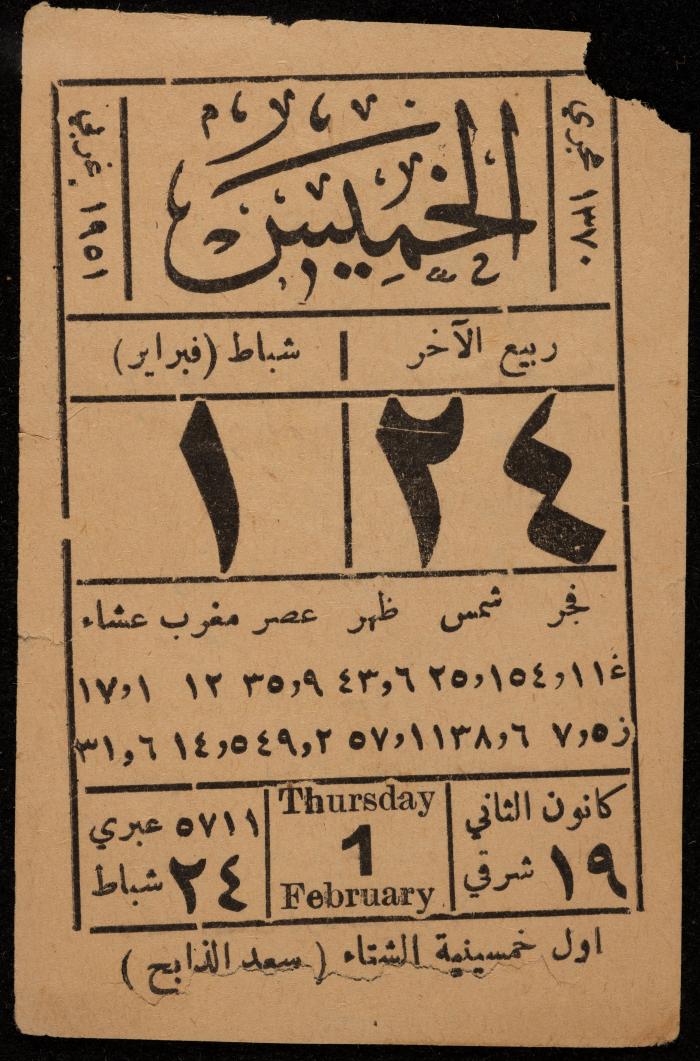 هجري ١٣٧٠
الخميس
١٩٥١ غربي
ربيع الآخر | شباط (فبراير)
٢٤ ١
فجر شمس ظهر عصر مغرب عشاء
غ ١١و٥٤ ١و٢٥ ٦و٤٣ ٩و٣٥ ١٢ ١و١٧
ز ٥و٧ ٦و٣٨ ١١و٥٧ ٢و٤٩ ٥و١٤ ٦و٣١
كانون الثاني
١٩ شرقي
Thursday
1
February
٥٧١١ عبري
٢٤ شباط
اول خمسينية الشتاء (سعد الذابح)